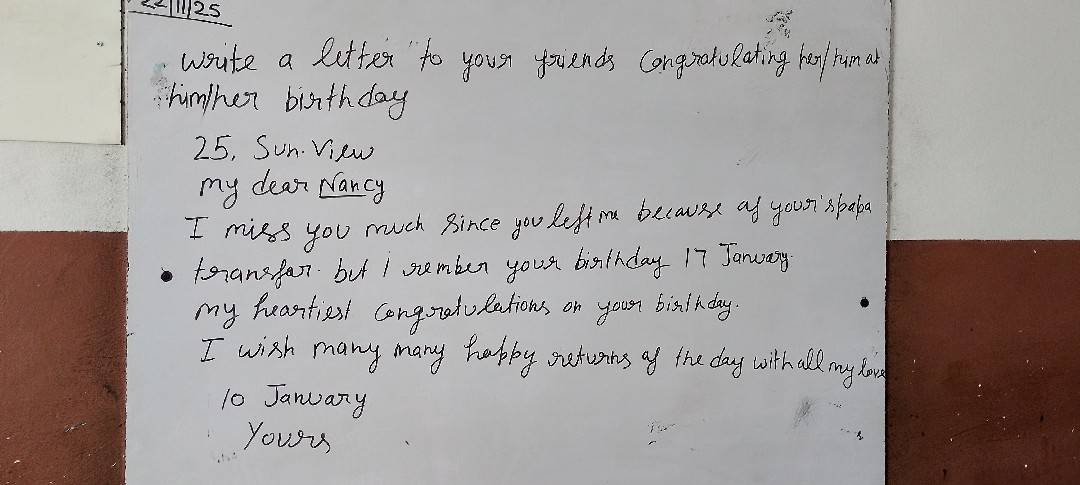 22/11/25
write a letter to your friends Congratulating her/him at
him/her birthday
25, Sun. View
my dear Nancy
I miss you much Since you left me because of your's papa
transfar. but I rember your birthday 17 January.
my heartiest Congratulations on your birthday.
I wish many many happy returns of the day with all my love
10 January
Yours